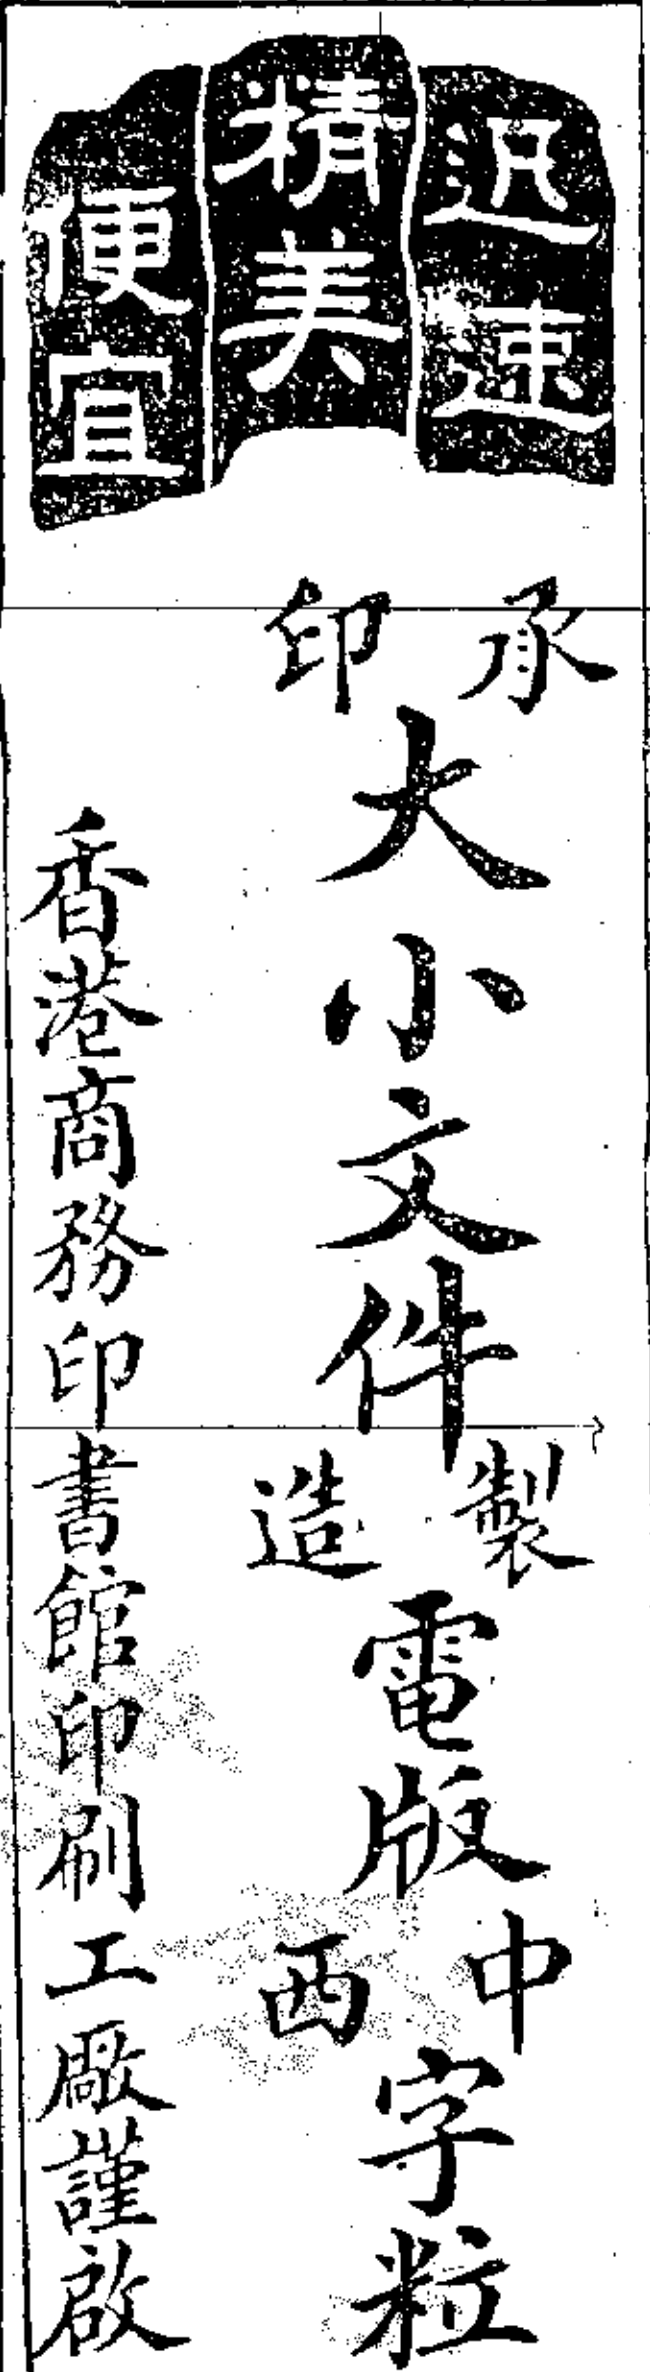 迅速
精美
便宜
承印大小文件製造電版中西字粒
香港商務印書館印刷工廠謹啟